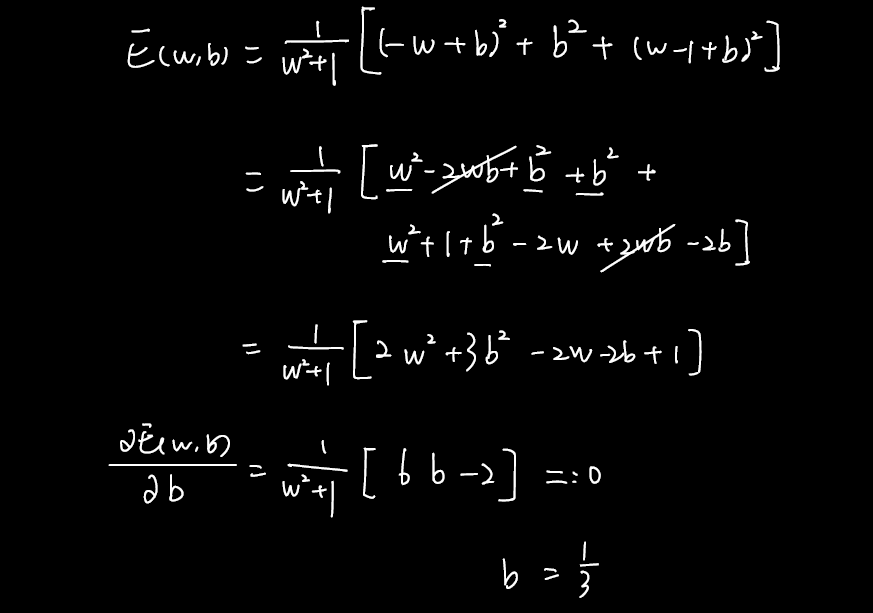 Ē(w,b) = 1/(w²+1) [(-w+b)² + b² + (w-1+b)²]
= 1/(w²+1) [w² - 2wb + b² + b² +
w² + 1 + b² - 2w + 2wb - 2b]
= 1/(w²+1) [2w² + 3b² - 2w - 2b + 1]
∂Ē(w,b)/∂b = 1/(w²+1) [6b - 2] =: 0
b = 1/3